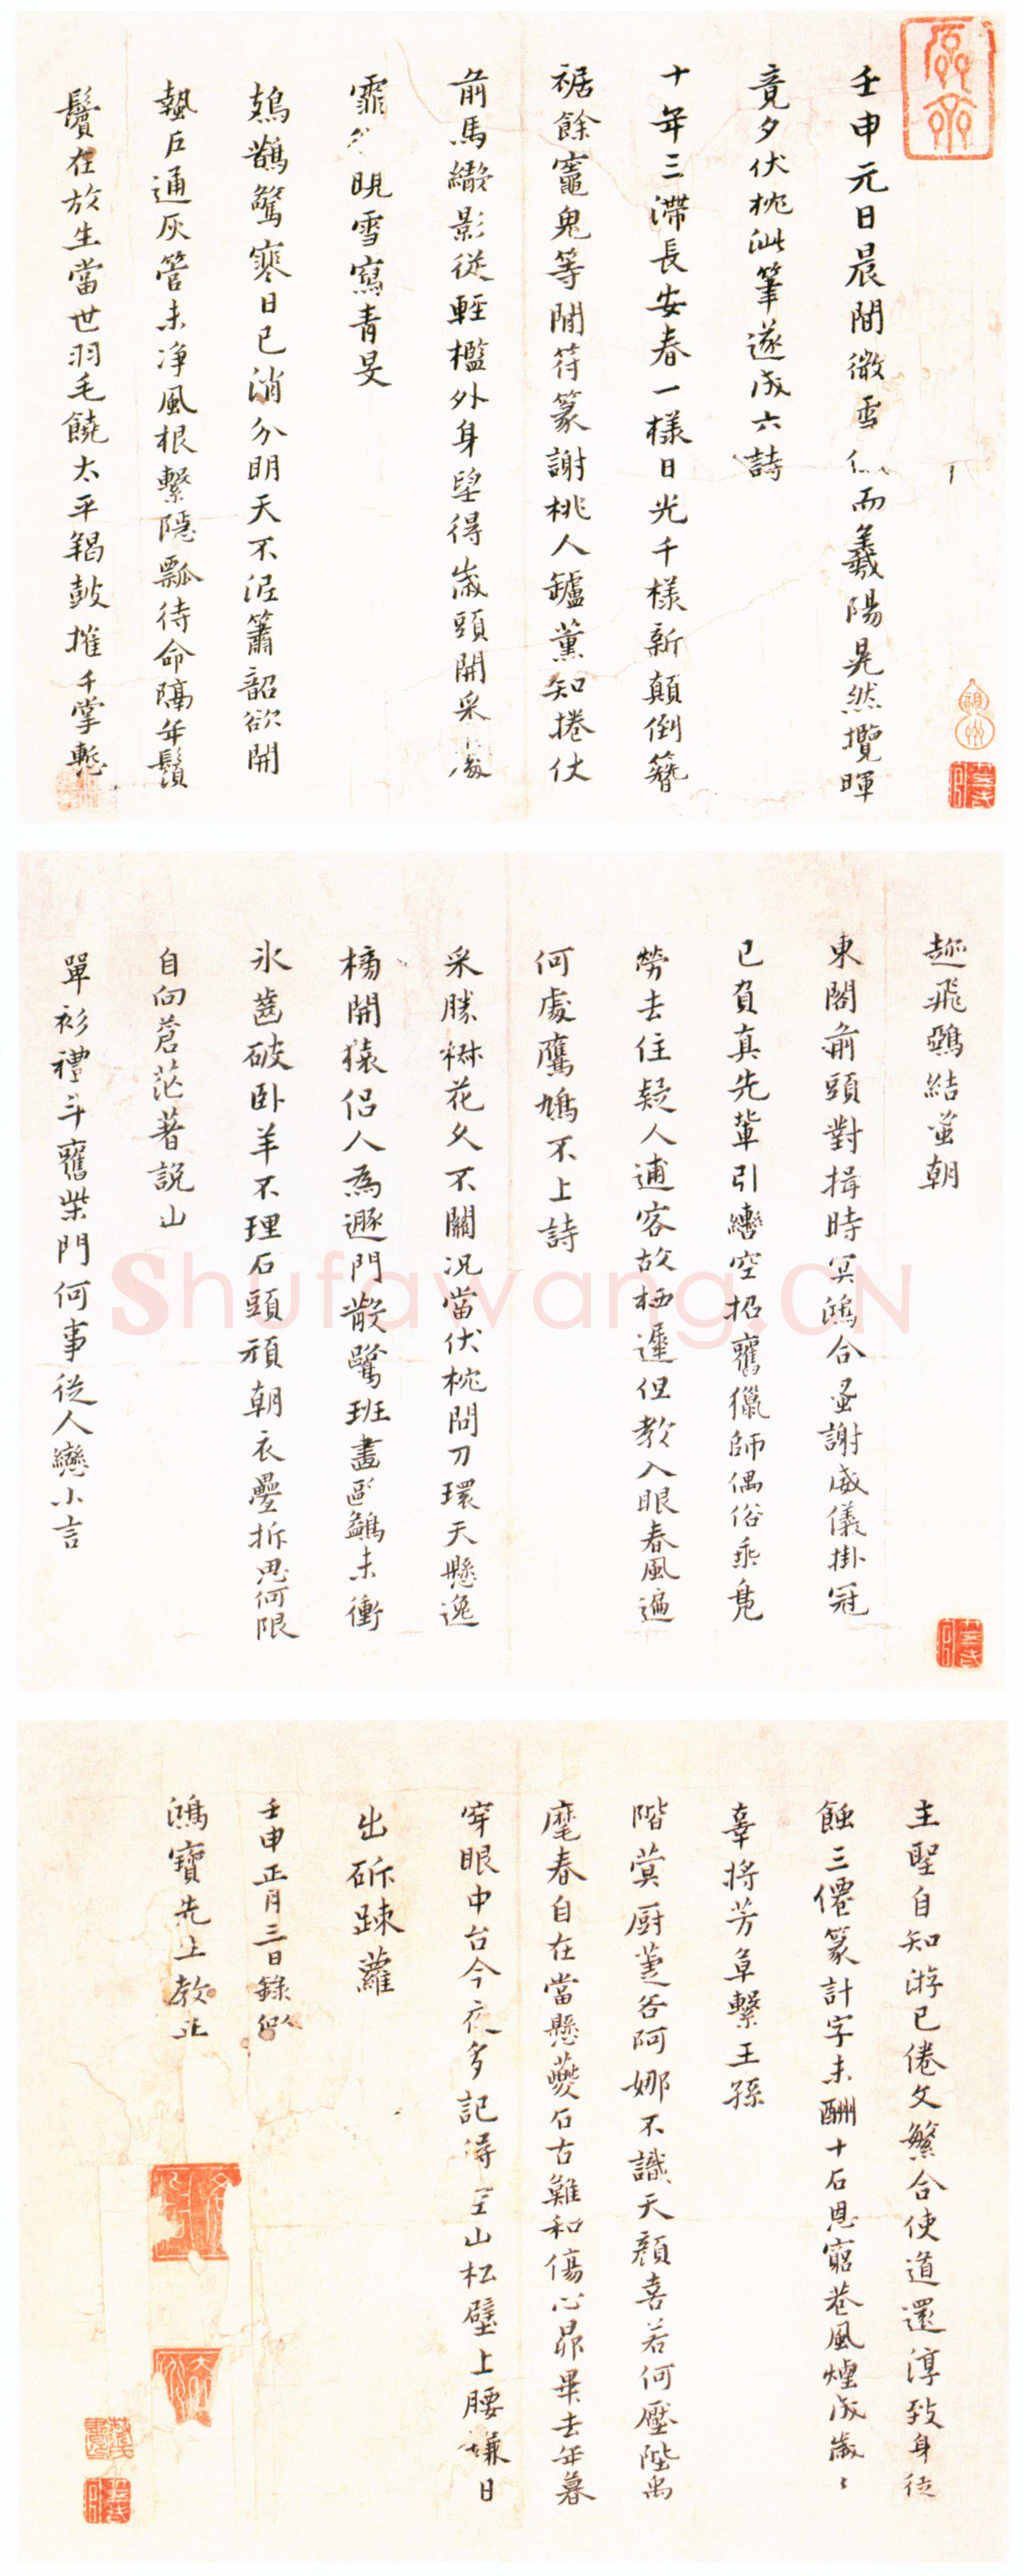 壬申元日晨間微雪 而羲陽晃然攬暉
竟夕伏枕泚筆遂成六詩
十年三滯長安春一樣日光千樣新顛倒簪
裾餘竈鬼等閒符篆謝桃人鑪薰知捲仗
前馬繖影從輕檻外身望得歲頭開采
霏 晛雪寫青旻
鳷鵲驚寒日已消分明天不泥簫韶欲開
蟄戶通灰管未淨風根繫隱瓢待命隔年鬚
鬢在放生當世羽毛饒太平羯鼓摧千掌慙
趂飛鵶結蚤朝
東閣前頭對揖時冥鴻合蚤謝威儀掛冠
已負真先輩引轡空招舊獵師偶俗乘鳧
勞去住疑人逋客故栖遲但教入眼春風遍
何處鷹鳩不上詩
采勝 花久不關況當伏枕問刀環天懸逸
檎開猿侶人為遯門散鷺班畫鷁未衝
氷齒破臥羊不理石頭頑朝衣疊拆思何限
自向蒼茫著說山
單衫禮斗舊柴門何事從人戀小言
主聖自知游已倦文繁合使道還淳致身徒
蝕三僊篆計字未酬十石恩窮巷風煙成歲歲
辜將芳草繫王孫
階蓂廚萐各阿娜不識天顏喜若何壓陛禹
麾春自在當懸夔石古難和傷心昴畢去年暮
穿眼中台今夜多記得 山松壁上腰鎌日
出斫踈蘿
壬申正月三日錄似
鴻寶先生教正
Shufawang.CN